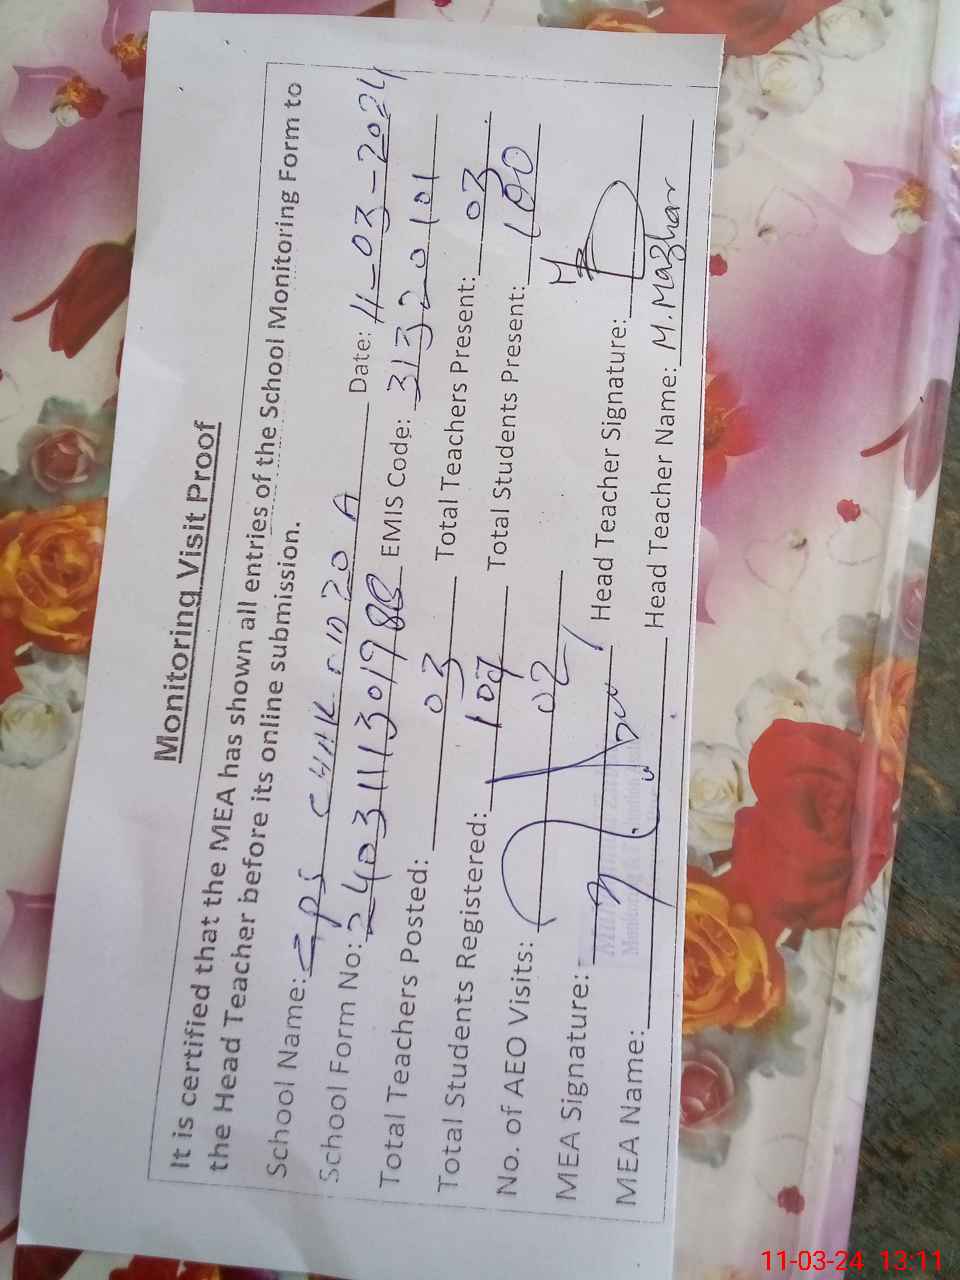 Monitoring Visit Proof
It is certified that the MEA has shown all entries of the School Monitoring Form to
the Head Teacher before its online submission.
School Name: PS CHAK 1020 A Date: 11-03-2024
School Form No: EMIS Code: 31320101
Total Teachers Posted: 03 Total Teachers Present: 03
Total Students Registered: 107 Total Students Present: 100
No. of AEO Visits: 02
MEA Signature: Head Teacher Signature:
MEA Name: Head Teacher Name: M. Mazhar
11-03-24 13:11